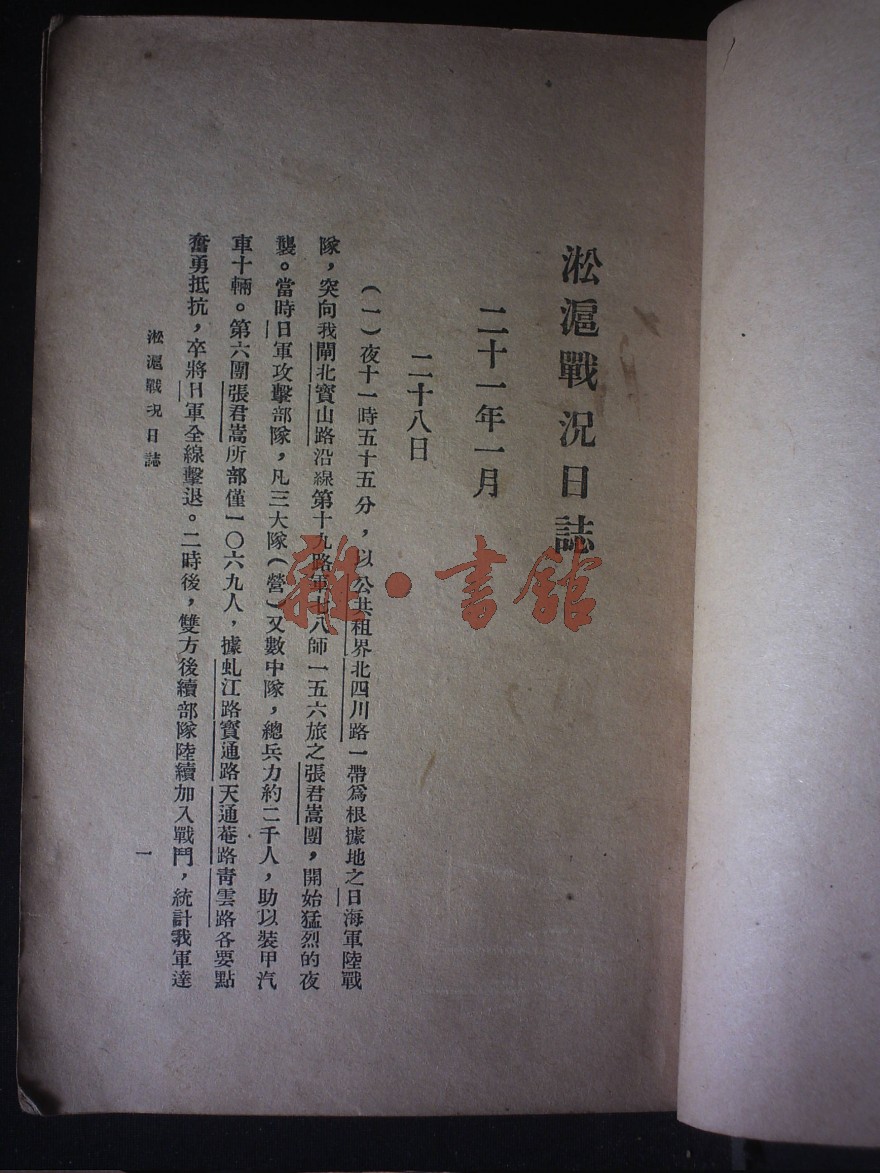 淞滬戰况日誌
二十一年一月
二十八日
(一)夜十一時五十五分,以公共租界北四川路一帶爲根據地之日海軍陸戰
隊,突向我閘北寶山路沿線第十九路軍七八師一五六旅之張君嵩團,開始猛烈的夜
襲。當時日軍攻擊部隊,凡三大隊(營)又數中隊,總兵力約二千人,助以裝甲汽
車十輛。第六團張君嵩所部僅一〇六九人,據虬江路寶通路天通菴路青雲路各要點
奮勇抵抗,卒將日軍全線擊退。二時後,雙方後續部隊陸續加入戰鬥,統計我軍達
淞滬戰况日誌
一
雜·書館